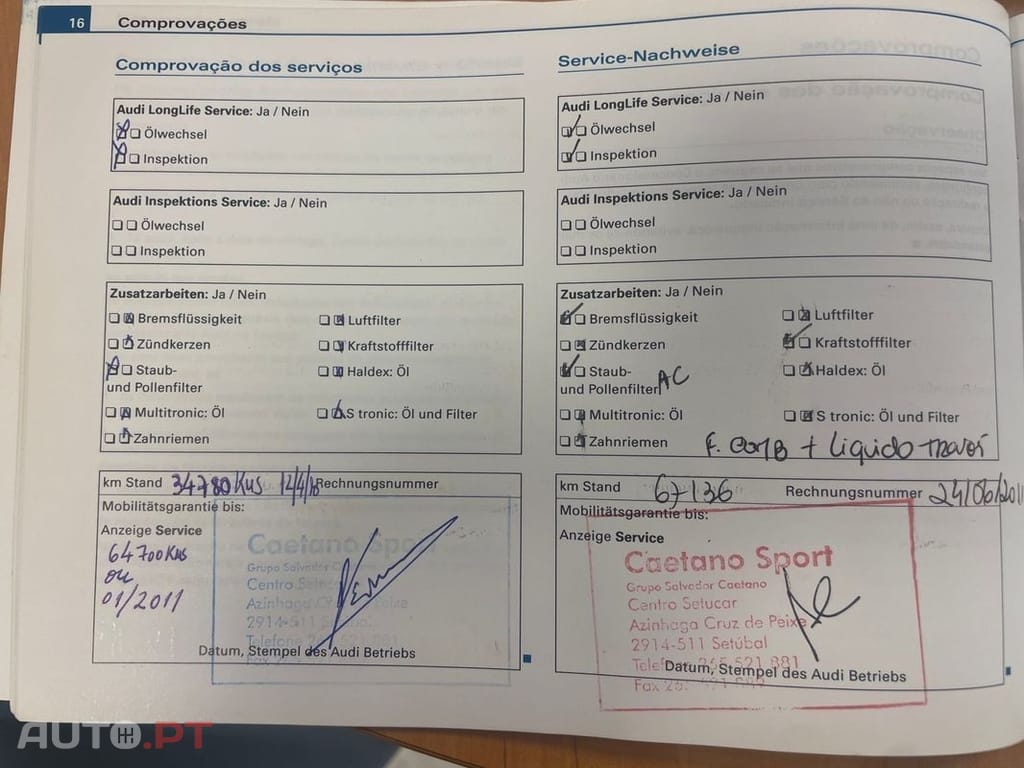 16 Comprovações
Comprovação dos serviços
Audi LongLife Service: Ja / Nein
Ölwechsel
Inspektion
Audi Inspektions Service: Ja / Nein
Ölwechsel
Inspektion
Zusatzarbeiten: Ja / Nein
Bremsflüssigkeit Luftfilter
Zündkerzen Kraftstofffilter
Staub- Haldex: Öl
und Pollenfilter
Multitronic: Öl S tronic: Öl und Filter
Zahnriemen
km Stand 34780 Kms Rechnungsnummer
Mobilitätsgarantie bis:
Anzeige Service
64700 Kms
ou
01/2011
Caetano Sport
Grupo Salvador
Centro
Azinhaga
2914-511
Telefone
Datum, Stempel des Audi Betriebs
Service-Nachweise
Audi LongLife Service: Ja / Nein
Ölwechsel
Inspektion
Audi Inspektions Service: Ja / Nein
Ölwechsel
Inspektion
Zusatzarbeiten: Ja / Nein
Bremsflüssigkeit Luftfilter
Zündkerzen Kraftstofffilter
Staub- Haldex: Öl
und Pollenfilter AC
Multitronic: Öl S tronic: Öl und Filter
Zahnriemen F. comB + Liquido
km Stand 67136 Rechnungsnummer 24/06/2011
Mobilitätsgarantie bis:
Anzeige Service
Caetano Sport
Grupo Salvador Caetano
Centro Setucar
Azinhaga Cruz de Peixe
2914-511 Setúbal
Telefone 265 521 881
Datum, Stempel des Audi Betriebs
Fax
AUTO.PT